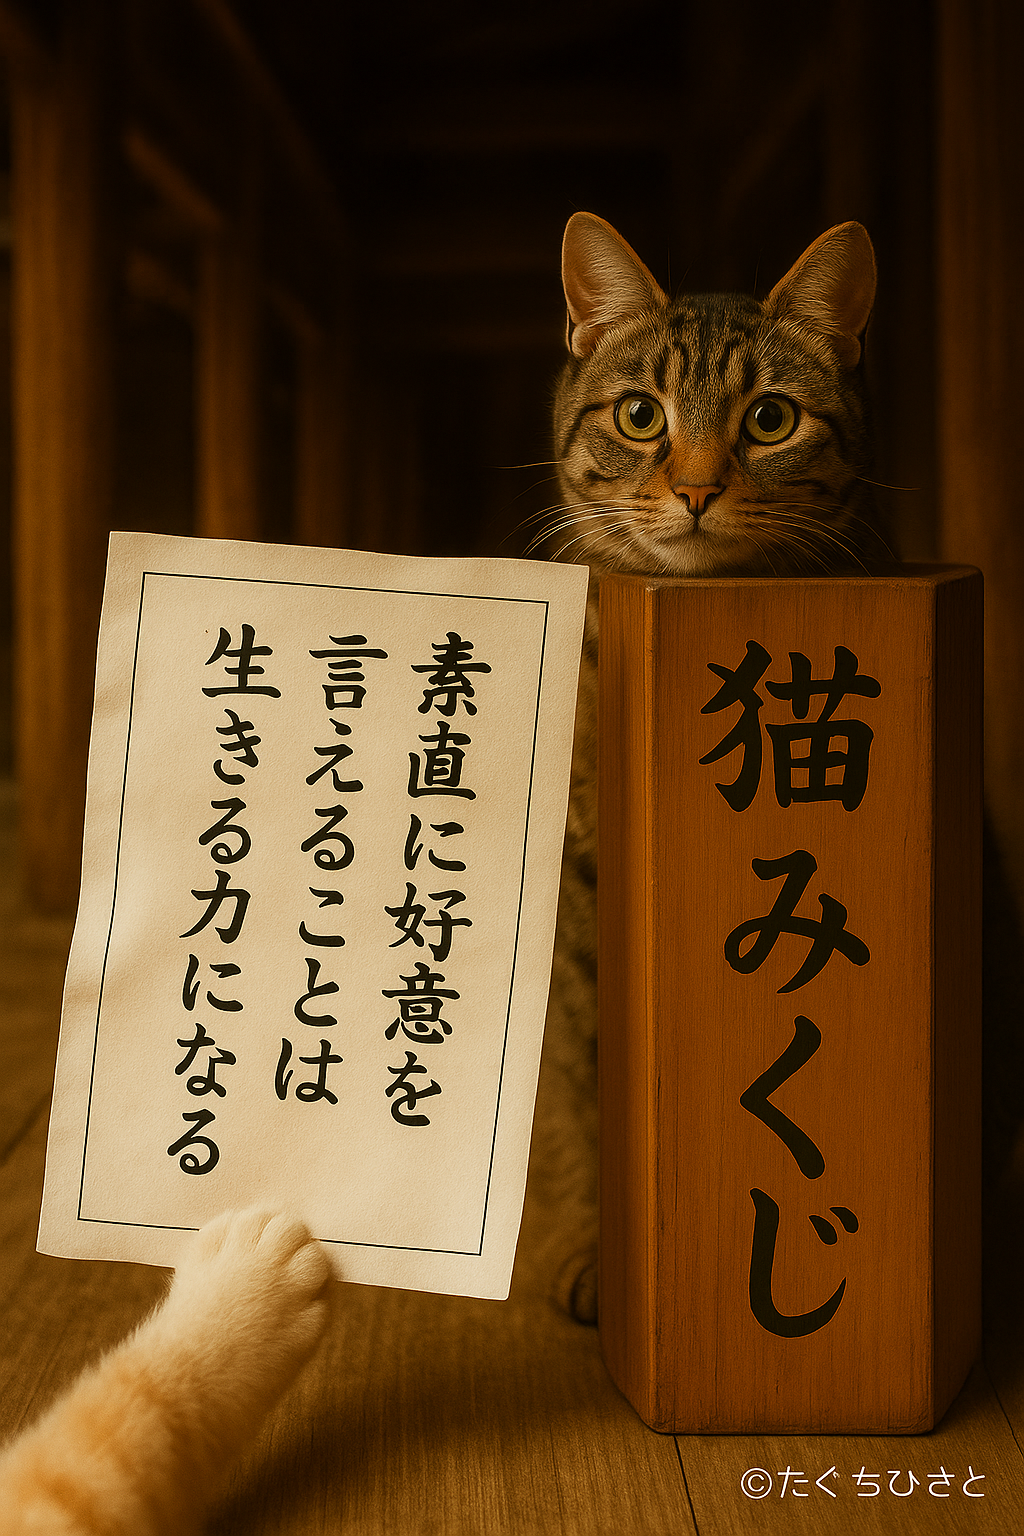 素直に好意を
言えることは
生きる力になる
猫みくじ
©たぐちひさと